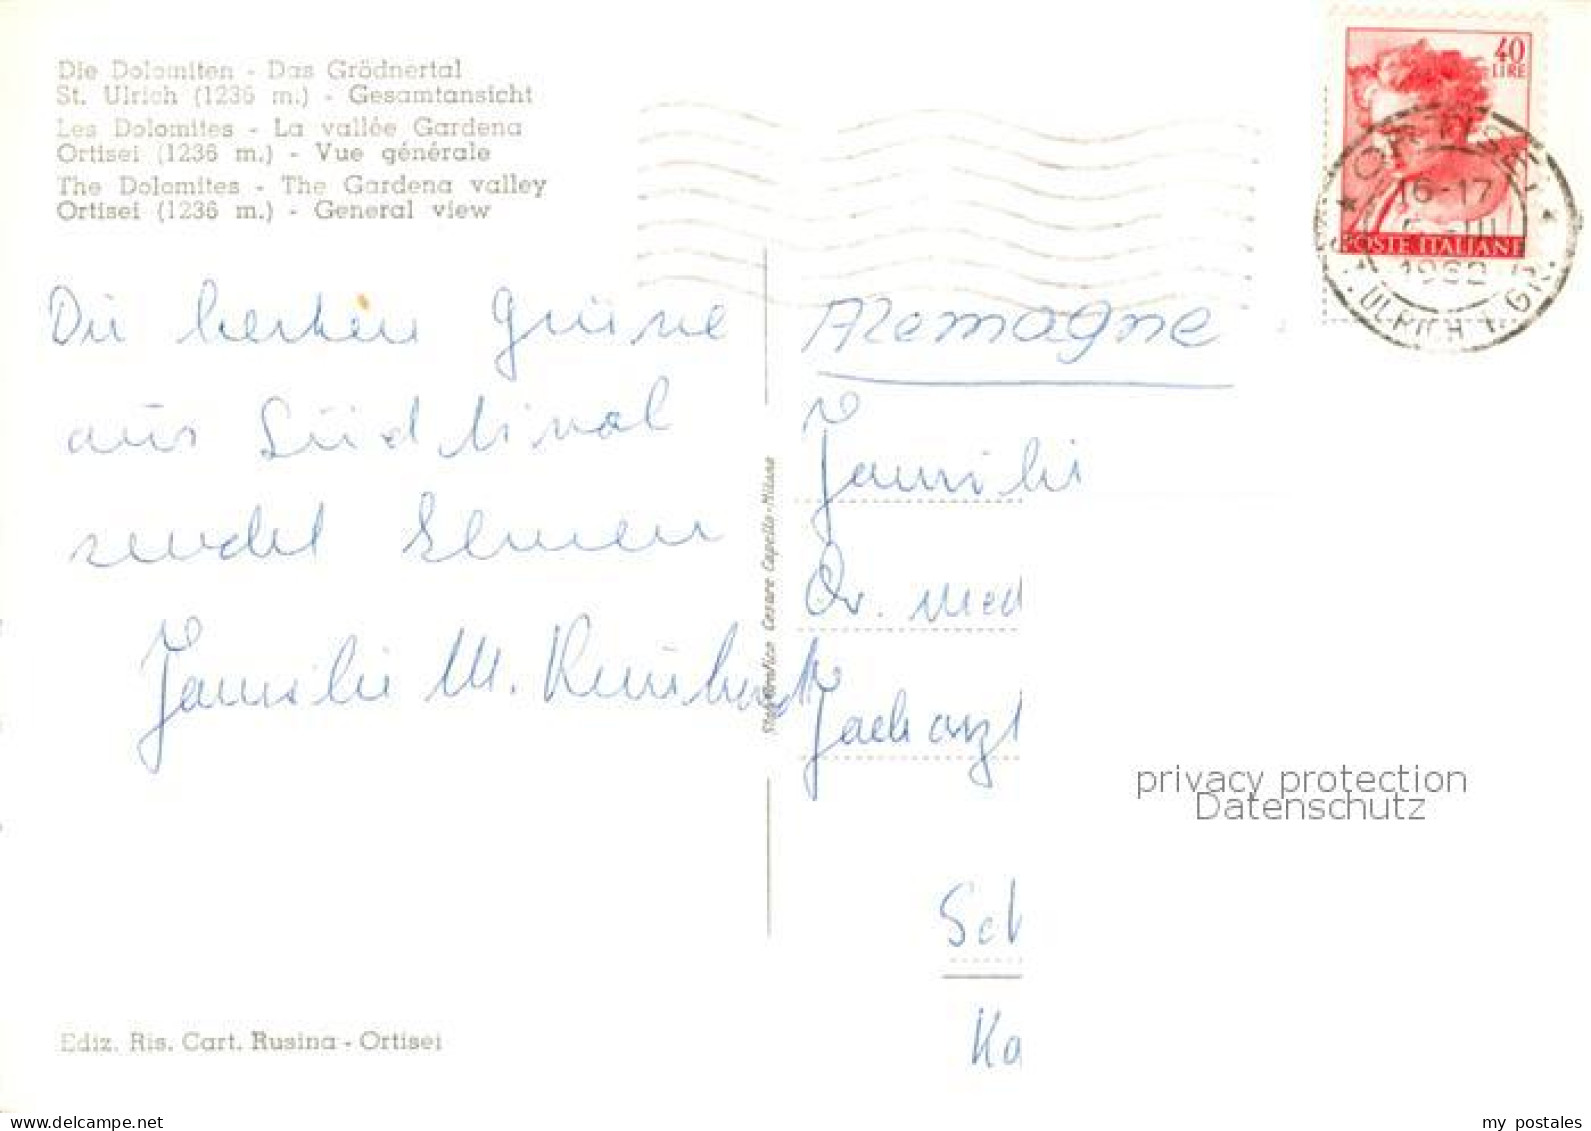 Die Dolomiten - Das Grödnertal
St. Ulrich (1236 m.) - Gesamtansicht
Les Dolomites - La vallée Gardena
Ortisei (1236 m.) - Vue générale
The Dolomites - The Gardena valley
Ortisei (1236 m.) - General view
40
LIRE
POSTE ITALIANE
ORTISEI
16-17
III
1962
ST. ULRICH I. GR.
Die herzlichen Grüsse
aus Südtirol
sendet Ihnen
Familie M. Reinhardt
Allemagne
Familie
Dr. med
Facharzt
Sch
Ka
Stab. Grafico Cesare Capello - Milano
privacy protection
Datenschutz
Ediz. Ris. Cart. Rusina - Ortisei
delcampe.net
my_postales